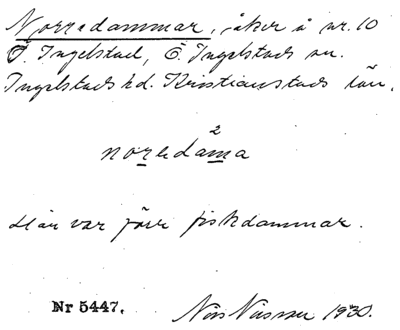 Norredammar, åker å nr. 10
Ö. Ingelstad, Ö. Ingelstads sn.
Ingelstads hd. Kristianstads län.
2
noredama
Här var förr fiskdammar.
Nr 5447.
Nils Nilsson 1930.